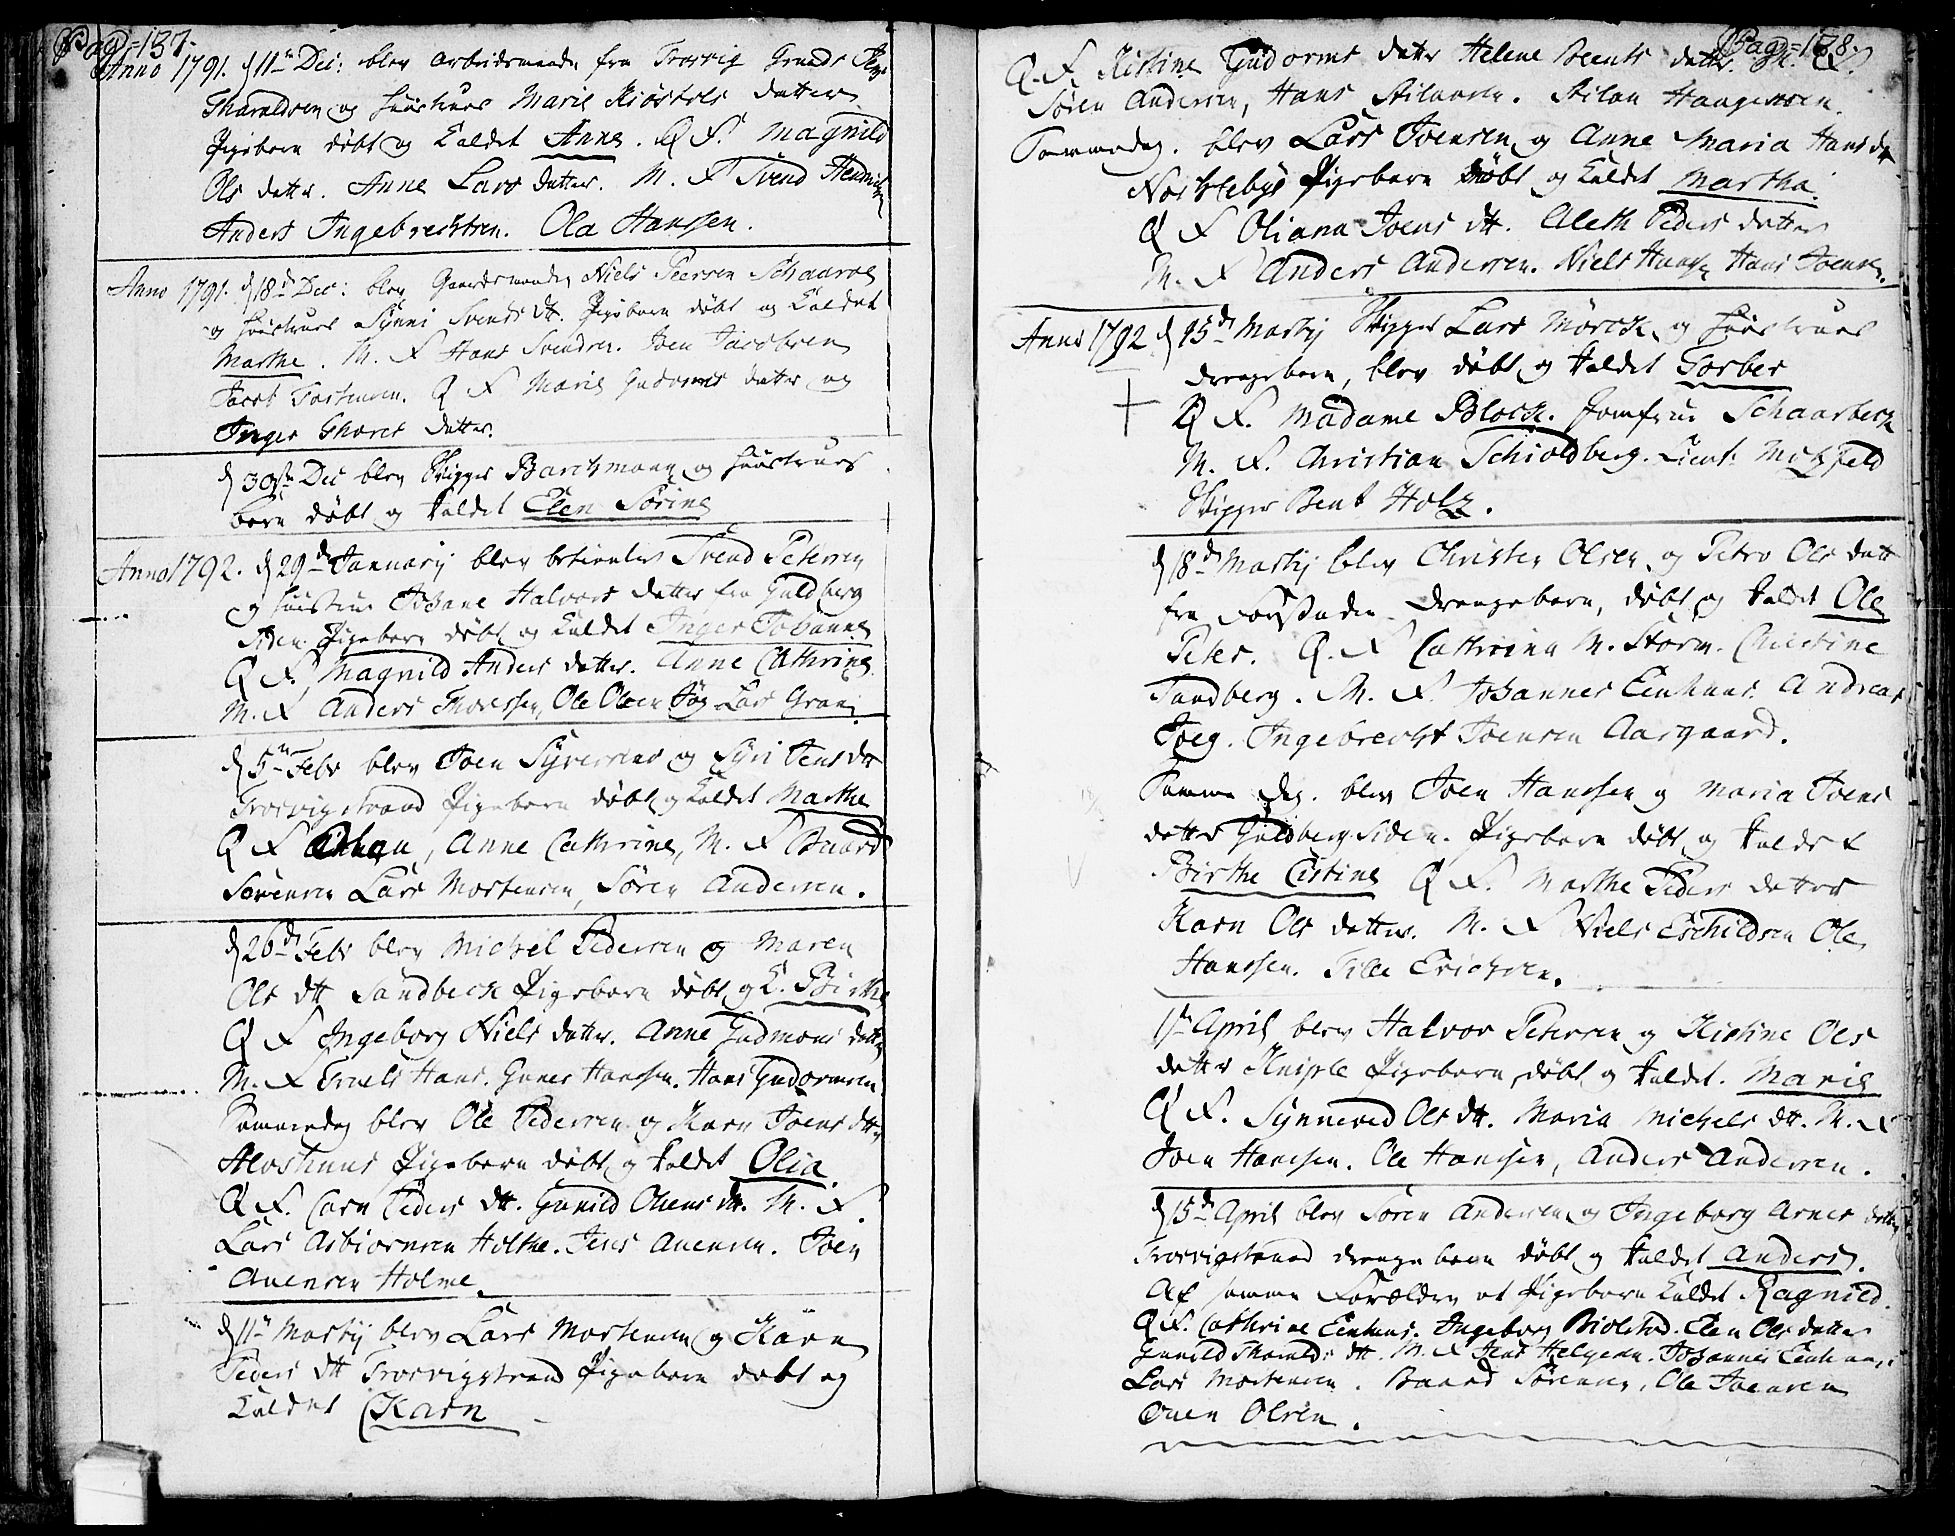 Pag=137.
Anno 1791. d 11te Dec: blev arbeidsmanden fra Trosvig Grunds
Tharaldsen og Huustrues Marie Kiøstels datter
Pigebarn døbt og Kaldet Anne. Q F. Magnild
Ols datter. Anne Lars datter. M. F Svend Hendrichsen
Anders Ingebrechtsen. Ola Hanssen.
Anno 1791. d 18de Dec: blev Gaardmanden Niels Peersen Schaaren
og Huustrues Synni Svends dtt. Pigebarn døbt og Kaldet
Marthe. M. F Hans Svendsen. Joen Jacobsen
Jacob Torstensen. Q F Maria Gudorms datter og
Inger Thores datter.
d 30te Dec blev Skipper Barchmann og Huustrues
barn døbt og kaldet Elen Sørine
Anno 1792. d 29de January blev Svend Petersen
og Huustrue Johane Halvors datter fra Guldberg
Siden. Pigebarn døbt og Kaldet Inger Johanne
Q F. Magnild Anders datter. Anne Cathrine
M. F Anders Thoressen, Ole Olsen Høg Lars Grani
d 5te Febr blev Joen Syversens og Syri Jens dtt
Trosvigstrand Pigebarn døbt og Kaldet Marthe
Q F, Anne Cathrine, M. F Baard
Sørensen Lars Mortensen, Søren Andersen.
d 26de Febr blev Michel Pedersen og Maren
Ols dtt Sandbeck Pigebarn døbt og K. Birthe
Q F Ingeborg Niels datter. Anne Gudmons datter
M. F Troels Hans. Guner Hanssen. Hans Gudormsen
Sammedag blev Ole Pedersen og Karn Joens dtt
Pigebarn døbt og kaldet Olia.
Q F. Carn Peders dtt. Gunild Olsens dtt. M. F.
Lars Asbiørnsen Holthe. Jens Avensen. Joen
Avensen Holme.
d 11te Martij blev Lars Mortensen og Karn
Peders dtt Trosvigstrand Pigebarn døbt og
Kaldet Karn
Pag=138.
Q. F. Kistine Gudorms datter Helene Beents datter. M. F.
Søren Andersen, Hans. Haagensen.
Sammedag. blev Lars Joensen og Anne Maria Hans dtt
Norklebye Pigebarn døbt og Kaldet Martha.
Q F Oliana Joens dtt. Aleth Peders datter
M. F Anders Andersen. Niels Hansen Hans Joensen.
Anno 1792 d 15de Martij Skipper Lars Mørck og Huustrues
drengebarn, blev døbt og kaldet Torber
Q F. Madame Block. Jomfrue Schaarbech
M. F. Christian Schioldberg. Lieut: Motzfeld
Skipper Bent Holz.
d 18de Martij blev Christen Olsen og Petro Ols datt
fra Forstaden Drengebarn, døbt og kaldet Ole
Peter. Q. F Cathrina M. Storm. Christine
Sandberg. M. F. Johannes Eenhuus. Andreas
Høeg. Ingebrecht Joensen Aargaard.
Samme Dag. blev Joen Hanssen og Maria Joens
datter Guldberg Siden. Pigebarn døbt og kaldet
Birthe Cistine Q F. Marthe Peders datter
Karn Ols datter. M. F Niels Eschildsen Ole
Hanssen. Tille Erichsen.
1te April blev Halvor Petersen og Kistine Ols
datter Kniple Pigebarn døbt og kaldet. Marie
Q F. Synneved Ols dtt. Maria Michels dtt. M. F
Joen Hanssen. Ole Hanssen, Anders Andersen.
d 15de April blev Søren Andersen og Ingeborg Arnes datter
Trosvigstrand drengebarn døbt og kaldet Anders.
Af samme Forældre et Pigebarn Kaldet Ragnild.
Q F. Cathrine Eenhuus. Ingeborg Biølstad. Elen Ols datter
Gunild Tharalds dtt. M. F Jens Helgesen. Johannes Eenhuus.
Lars Mortensen. Baard Sørensen, Ole Joensen
Ouen Olsen.